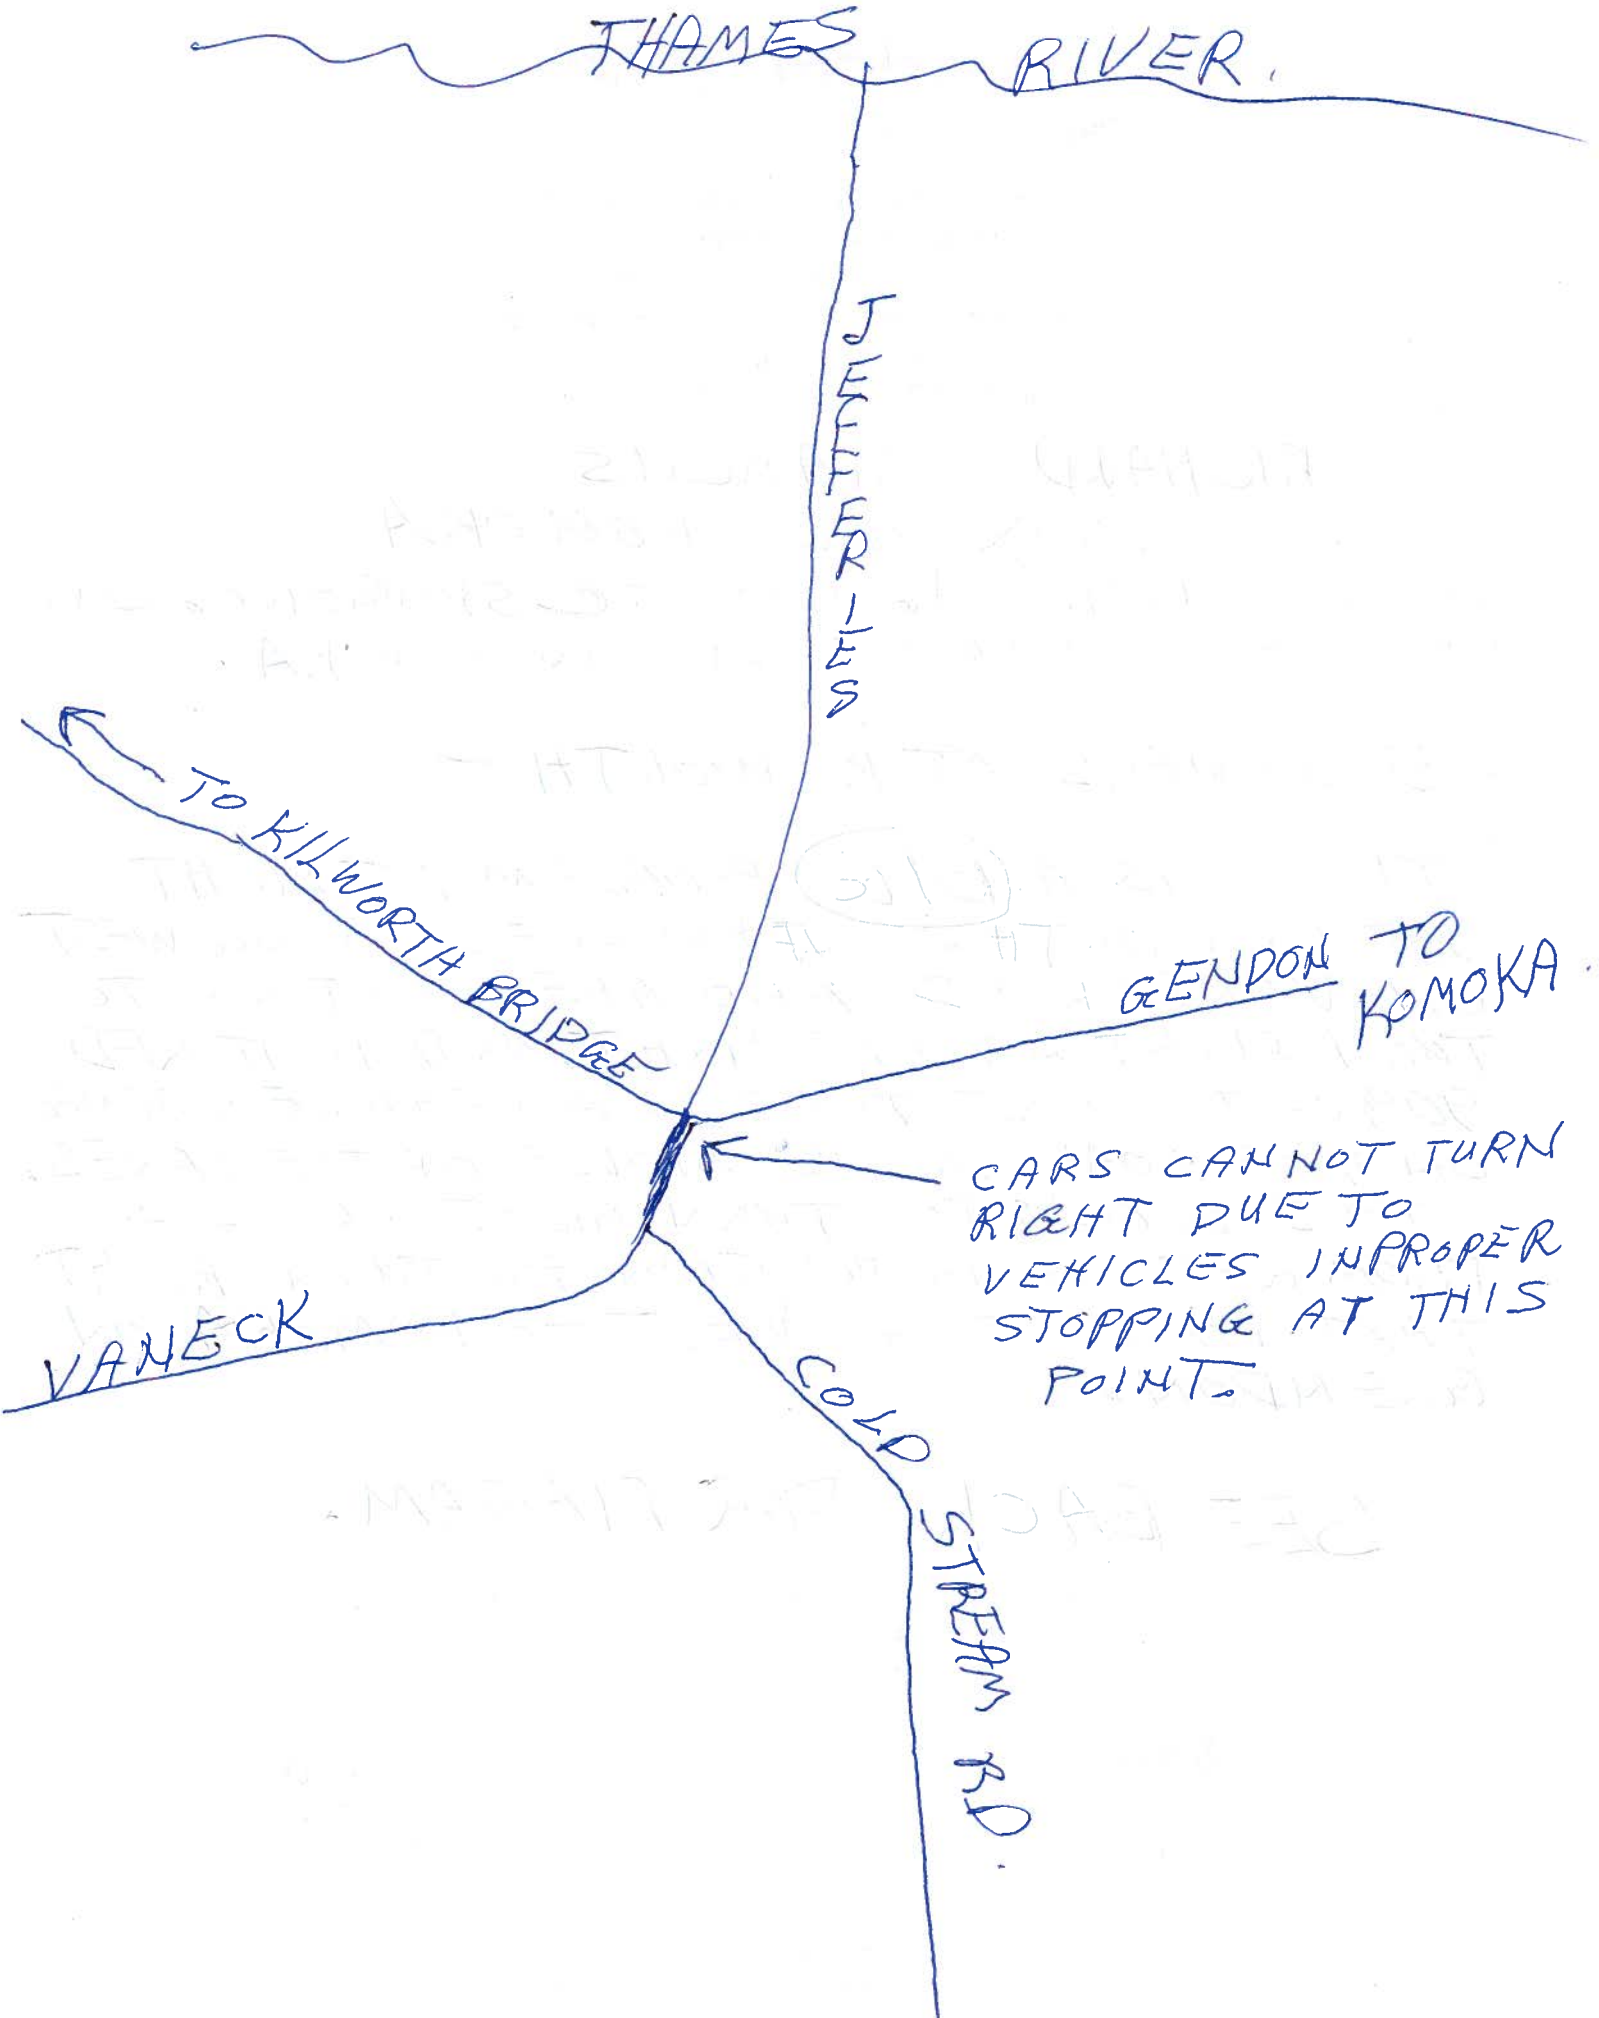 THAMES RIVER.
JEFFERIES
TO KILWORTH BRIDGE
GENDON TO
KOMOKA.
CARS CANNOT TURN
RIGHT DUE TO
VEHICLES INPROPER
STOPPING AT THIS
POINT.
VANECK
COLD STREAM RD.